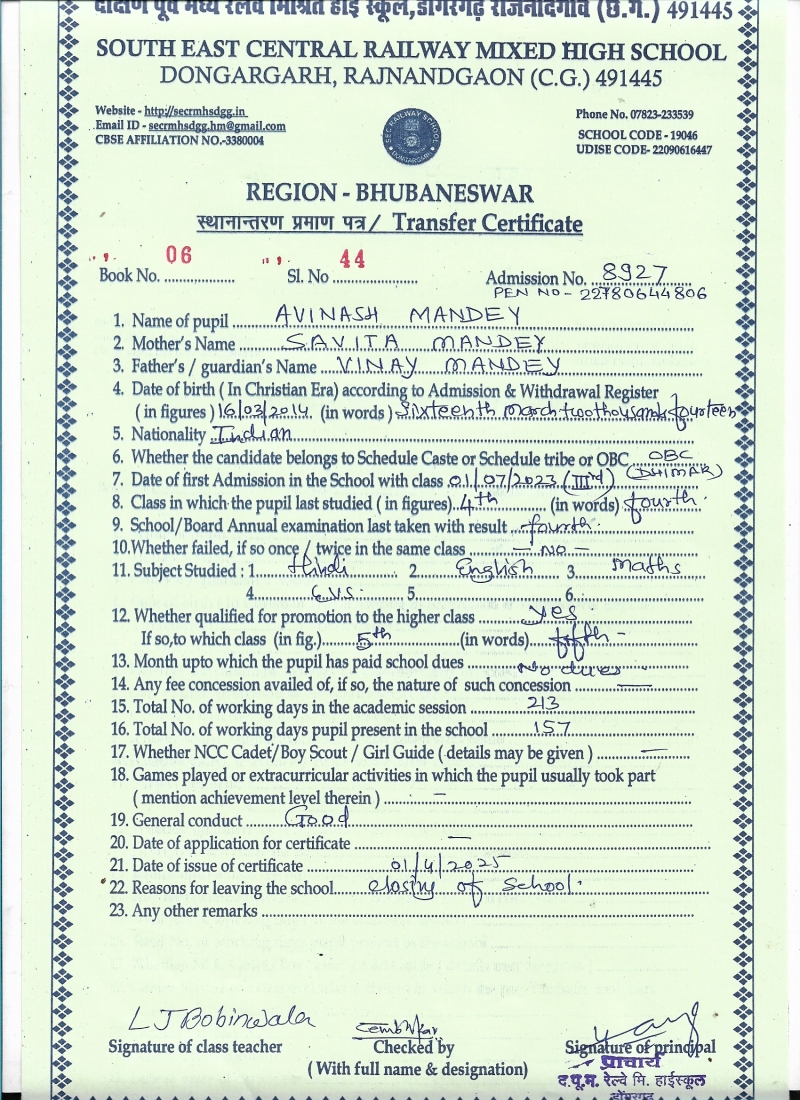 दक्षिण पूर्व मध्य रेलवे मिश्रित हाई स्कूल,डोंगरगढ़ राजनांदगांव (छ.ग.) 491445
SOUTH EAST CENTRAL RAILWAY MIXED HIGH SCHOOL
DONGARGARH, RAJNANDGAON (C.G.) 491445
Website - http://secrmhsdgg.in
Email ID - secrmhsdgg.hm@gmail.com
CBSE AFFILIATION NO.-3380004
SEC RAILWAY SCHOOL DONGARGARH
Phone No. 07823-233539
SCHOOL CODE - 19046
UDISE CODE- 22090616447
REGION - BHUBANESWAR
स्थानान्तरण प्रमाण पत्र / Transfer Certificate
Book No. 06 Sl. No 44 Admission No. 8927
PEN NO - 22780644806
1. Name of pupil AVINASH MANDEY
2. Mother's Name SAVITA MANDEY
3. Father's / guardian's Name VINAY MANDEY
4. Date of birth ( In Christian Era) according to Admission & Withdrawal Register
( in figures ) 16/03/2014. (in words ) Sixteenth march twothousand fourteen
5. Nationality Indian
6. Whether the candidate belongs to Schedule Caste or Schedule tribe or OBC OBC
(DHIMAR)
7. Date of first Admission in the School with class 01/07/2023 (IIIrd)
8. Class in which the pupil last studied ( in figures) 4th (in words) fourth
9. School/Board Annual examination last taken with result fourth
10.Whether failed, if so once / twice in the same class - no -
11. Subject Studied : 1 Hindi 2 English 3 maths
4 E.V.S. 5 6
12. Whether qualified for promotion to the higher class yes
If so,to which class (in fig.) 5th (in words) fifth -
13. Month upto which the pupil has paid school dues No dues
14. Any fee concession availed of, if so, the nature of such concession —
15. Total No. of working days in the academic session 213
16. Total No. of working days pupil present in the school 157
17. Whether NCC Cadet/Boy Scout / Girl Guide ( details may be given ) —
18. Games played or extracurricular activities in which the pupil usually took part
( mention achievement level therein ) —
19. General conduct Good
20. Date of application for certificate —
21. Date of issue of certificate 01/4/2025
22. Reasons for leaving the school closing of school.
23. Any other remarks
L J Bobinwala
Signature of class teacher Checked by Signature of principal
( With full name & designation)
प्राचार्य
द.पू.म. रेल्वे मि. हाईस्कूल
डोंगरगढ़